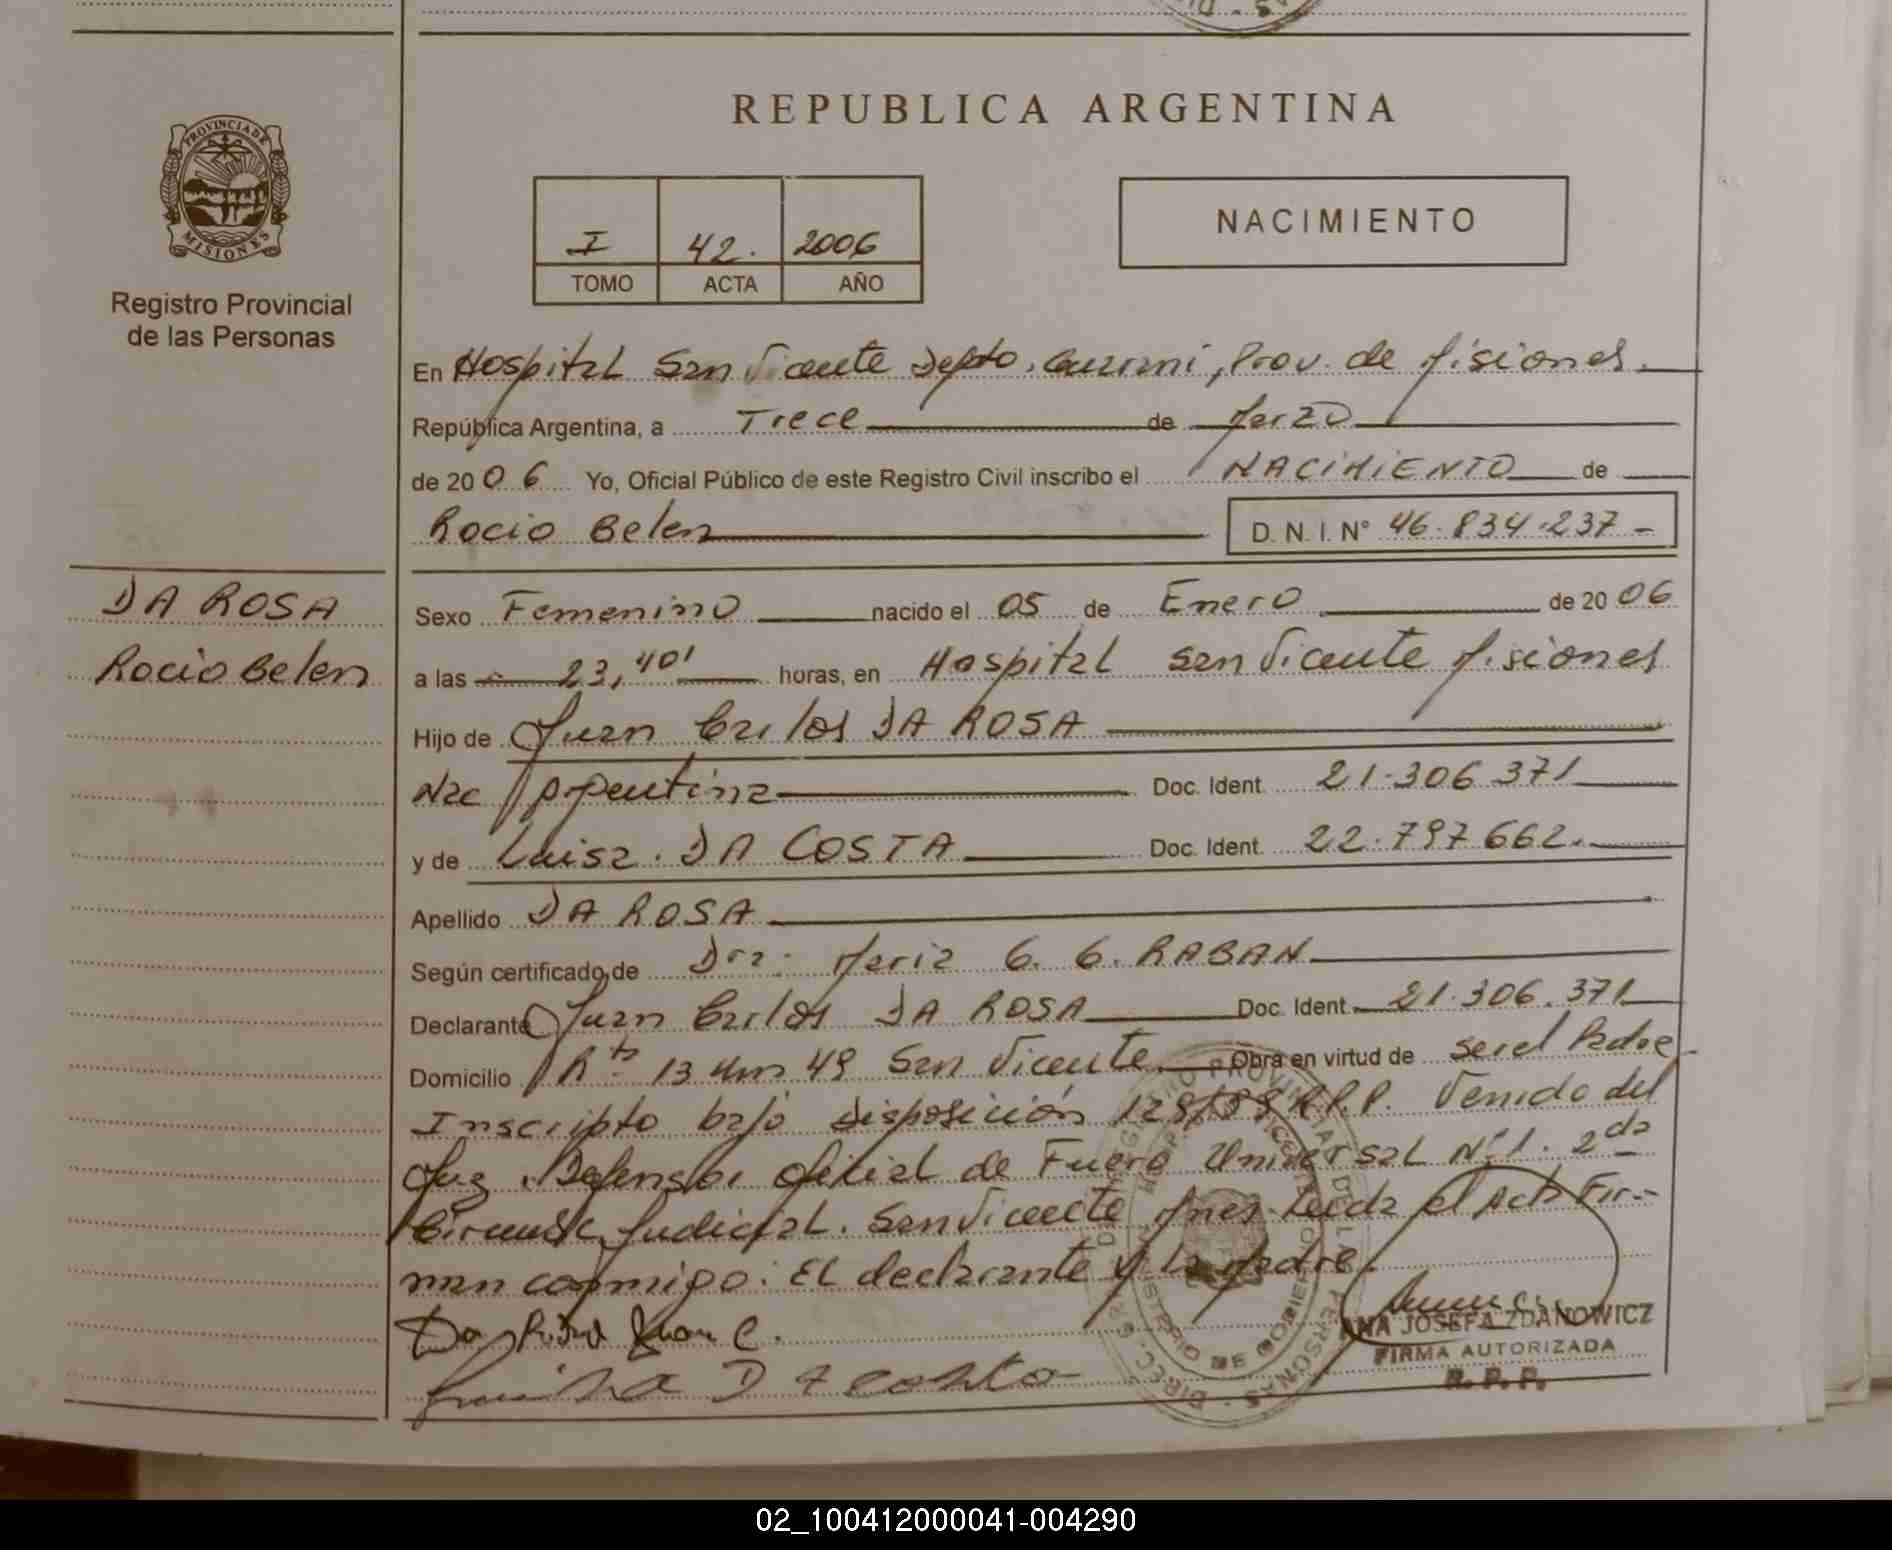 REPUBLICA ARGENTINA
PROVINCIA DE MISIONES
Registro Provincial
de las Personas
I 42. 2006
TOMO ACTA AÑO
NACIMIENTO
En Hospital San Vicente Depto. Guarani, Prov. de Misiones.
República Argentina, a Trece de Marzo
de 2006 Yo, Oficial Público de este Registro Civil inscribo el NACIMIENTO de
Rocio Belen D.N.I. N° 46.834.237-
DA ROSA
Rocio Belen
Sexo Femenino nacido el 05 de Enero de 2006
a las 23,40' horas, en Hospital San Vicente Misiones
Hijo de Juan Carlos DA ROSA
Nac Argentina Doc. Ident. 21.306.371
y de Luisa. DA COSTA Doc. Ident. 22.797.662.
Apellido DA ROSA
Según certificado de Dra: Maria G. G. RABAN
Declarante Juan Carlos DA ROSA Doc. Ident. 21.306.371
Domicilio Rta 13 Km 49 San Vicente Obra en virtud de ser el Padre
Inscripto bajo Disposición R.P.P. Venido del
Juz. Defensor Oficial de Fuero Universal N°1. 2da
Circunsc. Judicial. San Vicente Mnes. Leida el Acta Fir-
man conmigo: El declarante y la Madre.
Juan C.
ANA JOSEFA ZDANOWICZ
FIRMA AUTORIZADA
R.P.P.
02_100412000041-004290